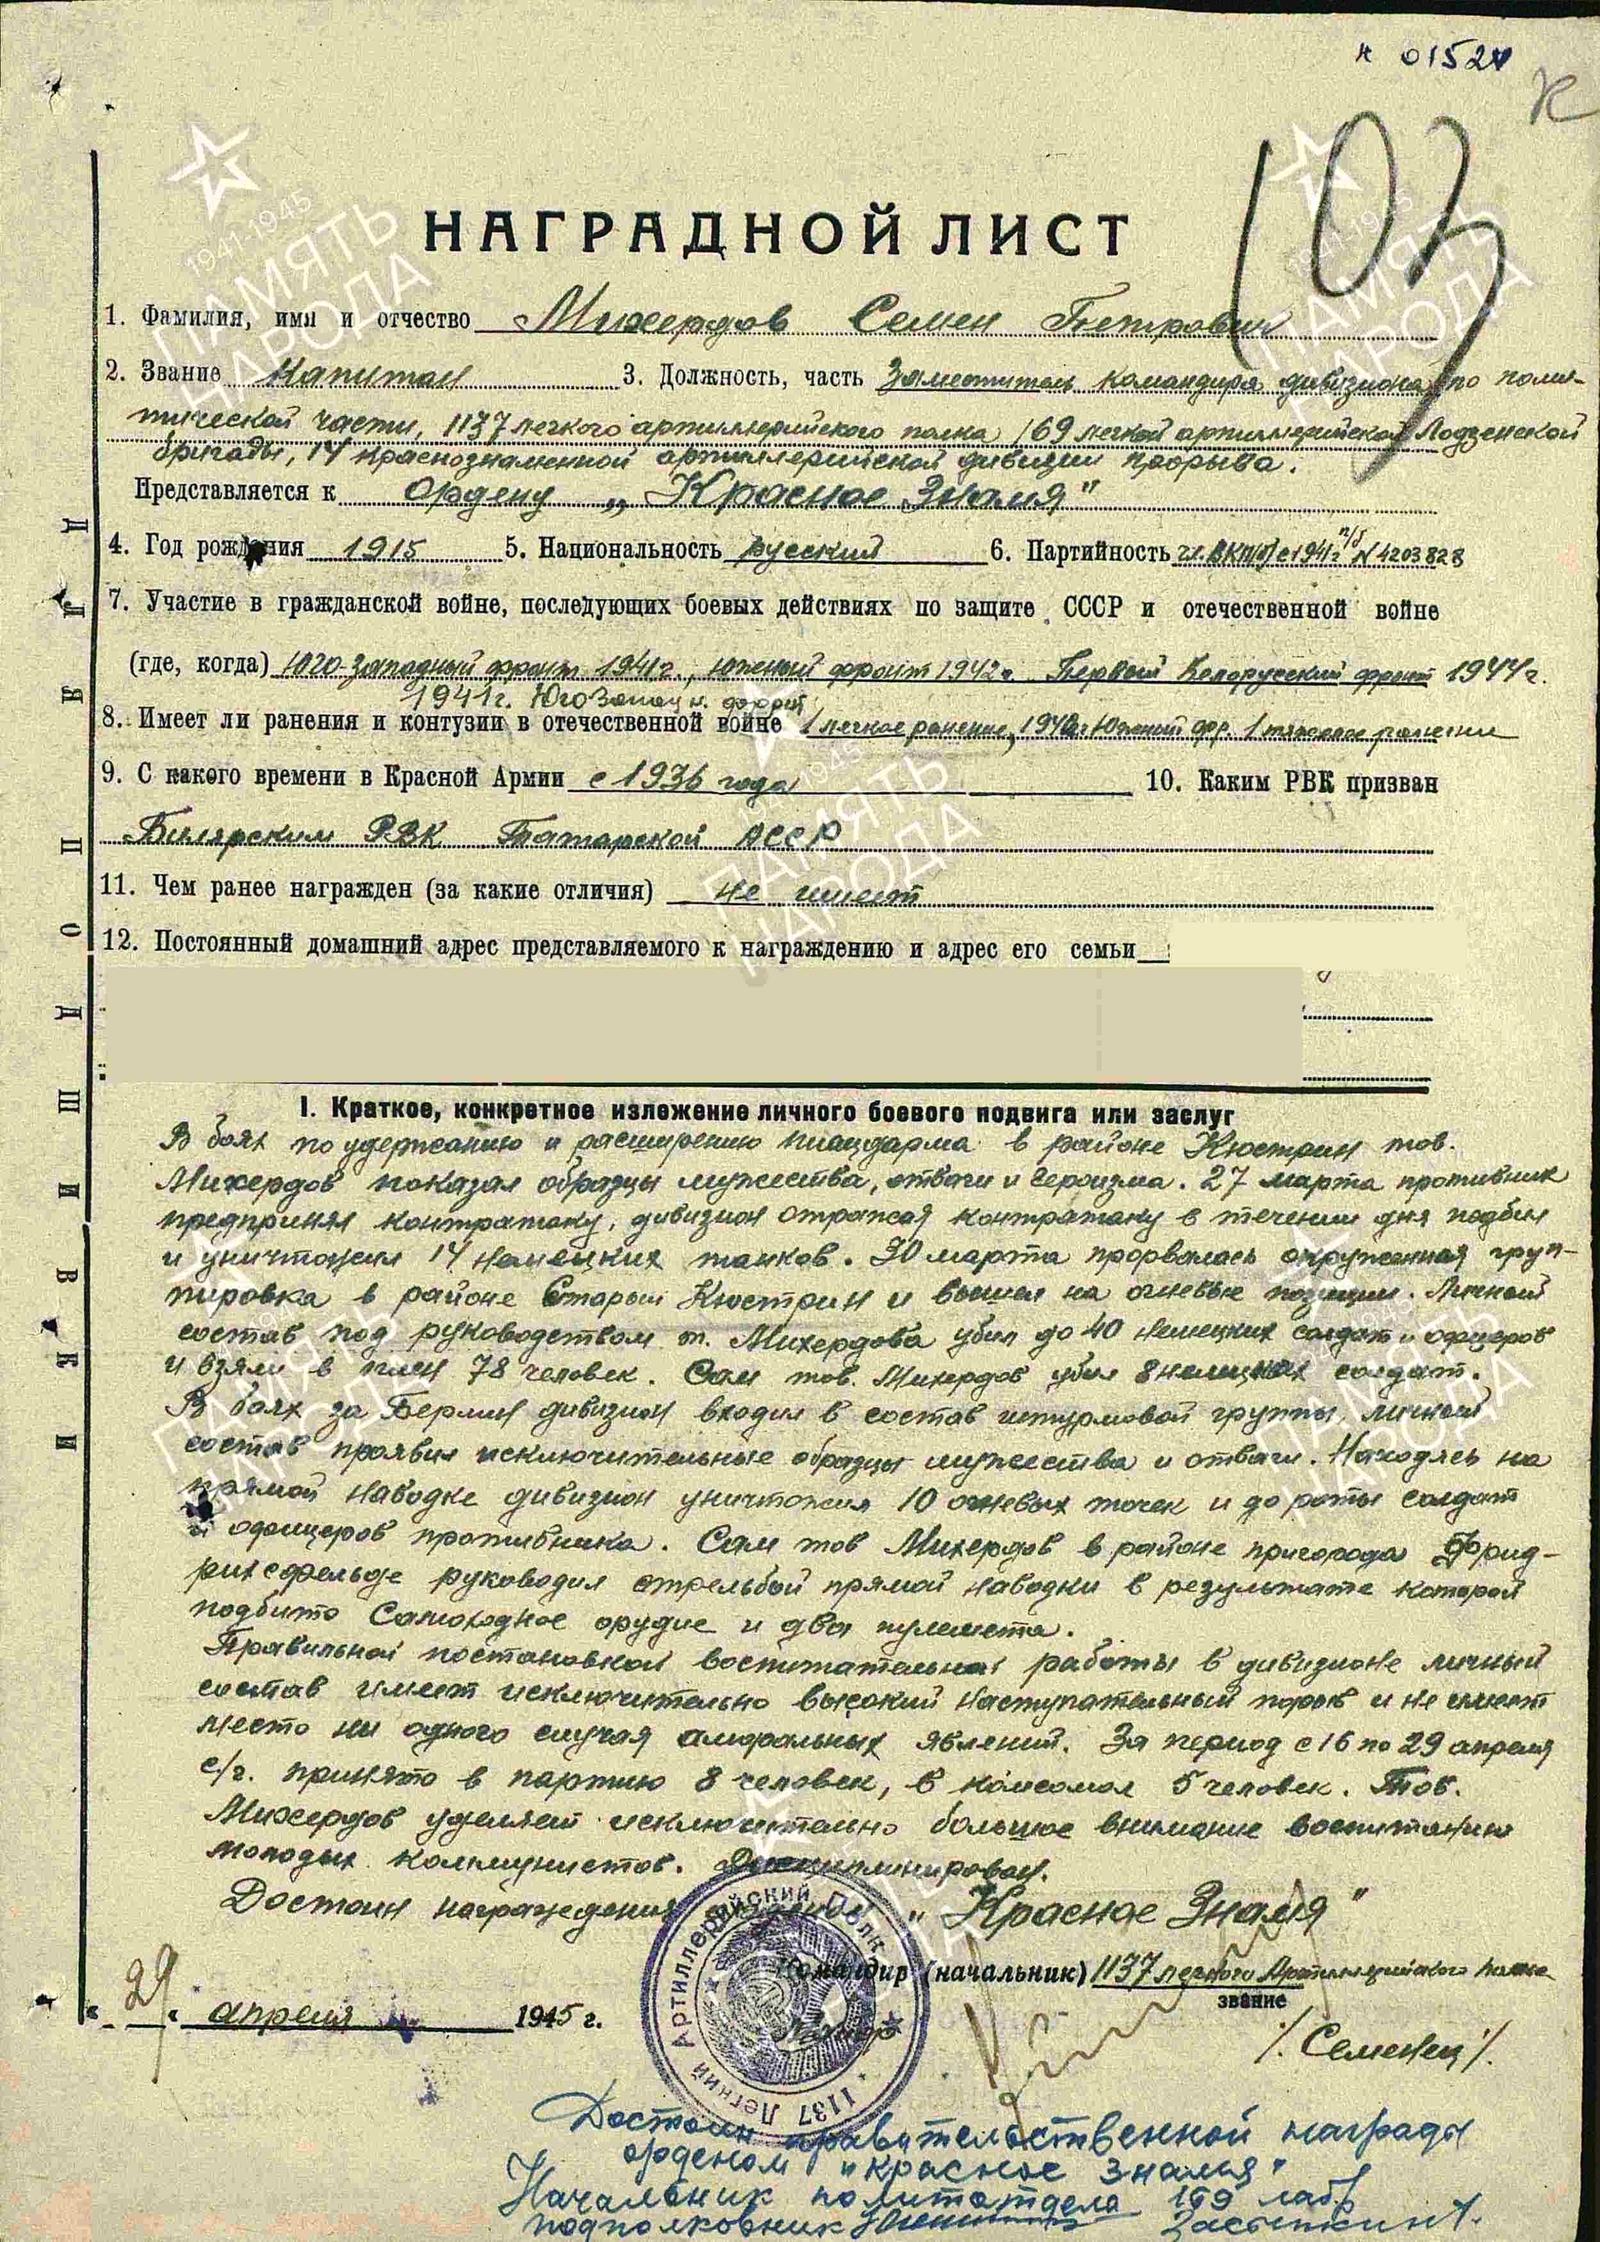 н 01527
к
103
НАГРАДНОЙ ЛИСТ
1. Фамилия, имя и отчество Михердов Семен Петрович
2. Звание Капитан 3. Должность, часть Заместитель командира дивизиона по поли-
тической части, 1137 легкого артиллерийского полка 169 легкой артиллерийской Лодзенской
бригады, 14 краснознаменной артиллерийской дивизии прорыва.
Представляется к Ордену „Красное Знамя"
4. Год рождения 1915 5. Национальность русский 6. Партийность чл. ВКП(б) с 1941г п/б N 4203828
7. Участие в гражданской войне, последующих боевых действиях по защите СССР и отечественной войне
(где, когда) Юго-Западный фронт 1941г., Южный фронт 1942г. Первый Белорусский фронт 1944г.
1941г. ЮгоЗападн. фронт
8. Имеет ли ранения и контузии в отечественной войне 1 легкое ранение, 1942г Южный фр. 1 тяжелое ранение
9. С какого времени в Красной Армии с 1936 года 10. Каким РВК призван
Билярским РВК Татарской АССР
11. Чем ранее награжден (за какие отличия) не имеет
12. Постоянный домашний адрес представляемого к награждению и адрес его семьи
I. Краткое, конкретное изложение личного боевого подвига или заслуг
В боях по удержанию и расширению плацдарма в районе Кюстрин тов.
Михердов показал образцы мужества, отваги и героизма. 27 марта противник
предпринял контратаку, дивизион отражая контратаку в течении дня подбил
и уничтожил 14 немецких танков. 30 марта прорвалась окруженная груп-
пировка в районе Старый Кюстрин и вышел на огневые позиции. Личный
состав под руководством т. Михердова убил до 40 немецких солдат и офицеров
и взяли в плен 78 человек. Сам тов. Михердов убил 8 немецких солдат.
В боях за Берлин дивизион входил в состав штурмовой группы, личный
состав проявил исключительные образцы мужества и отваги. Находясь на
прямой наводке дивизион уничтожил 10 огневых точек и до роты солдат
и офицеров противника. Сам тов Михердов в районе пригорода Фрид-
рихсфельде руководил стрельбой прямой наводки в результате которой
подбито Самоходное орудие и два пулемета.
Правильной постановкой воспитательной работы в дивизионе личный
состав имеет исключительно высокий наступательный порыв и не имеет
место ни одного случая аморальных явлений. За период с 16 по 29 апреля
с/г. принято в партию 8 человек, в комсомол 5 человек. Тов.
Михердов уделяет исключительно большое внимание воспитанию
молодых коммунистов. Дисциплинирован.
Достоин награждения орденом „Красное Знамя"
Командир (начальник) 1137 легкого Артиллерийского полка
звание
„29" апреля 1945 г.
/Семенец/.
1137 Легкий Артиллерийский Полк
Достоин правительственной награды
орденом „Красное Знамя"
Начальник политотдела 169 лабр
подполковник Засыпкин
ПОД ШИВКИ
1941-1945
ПАМЯТЬ
НАРОДА